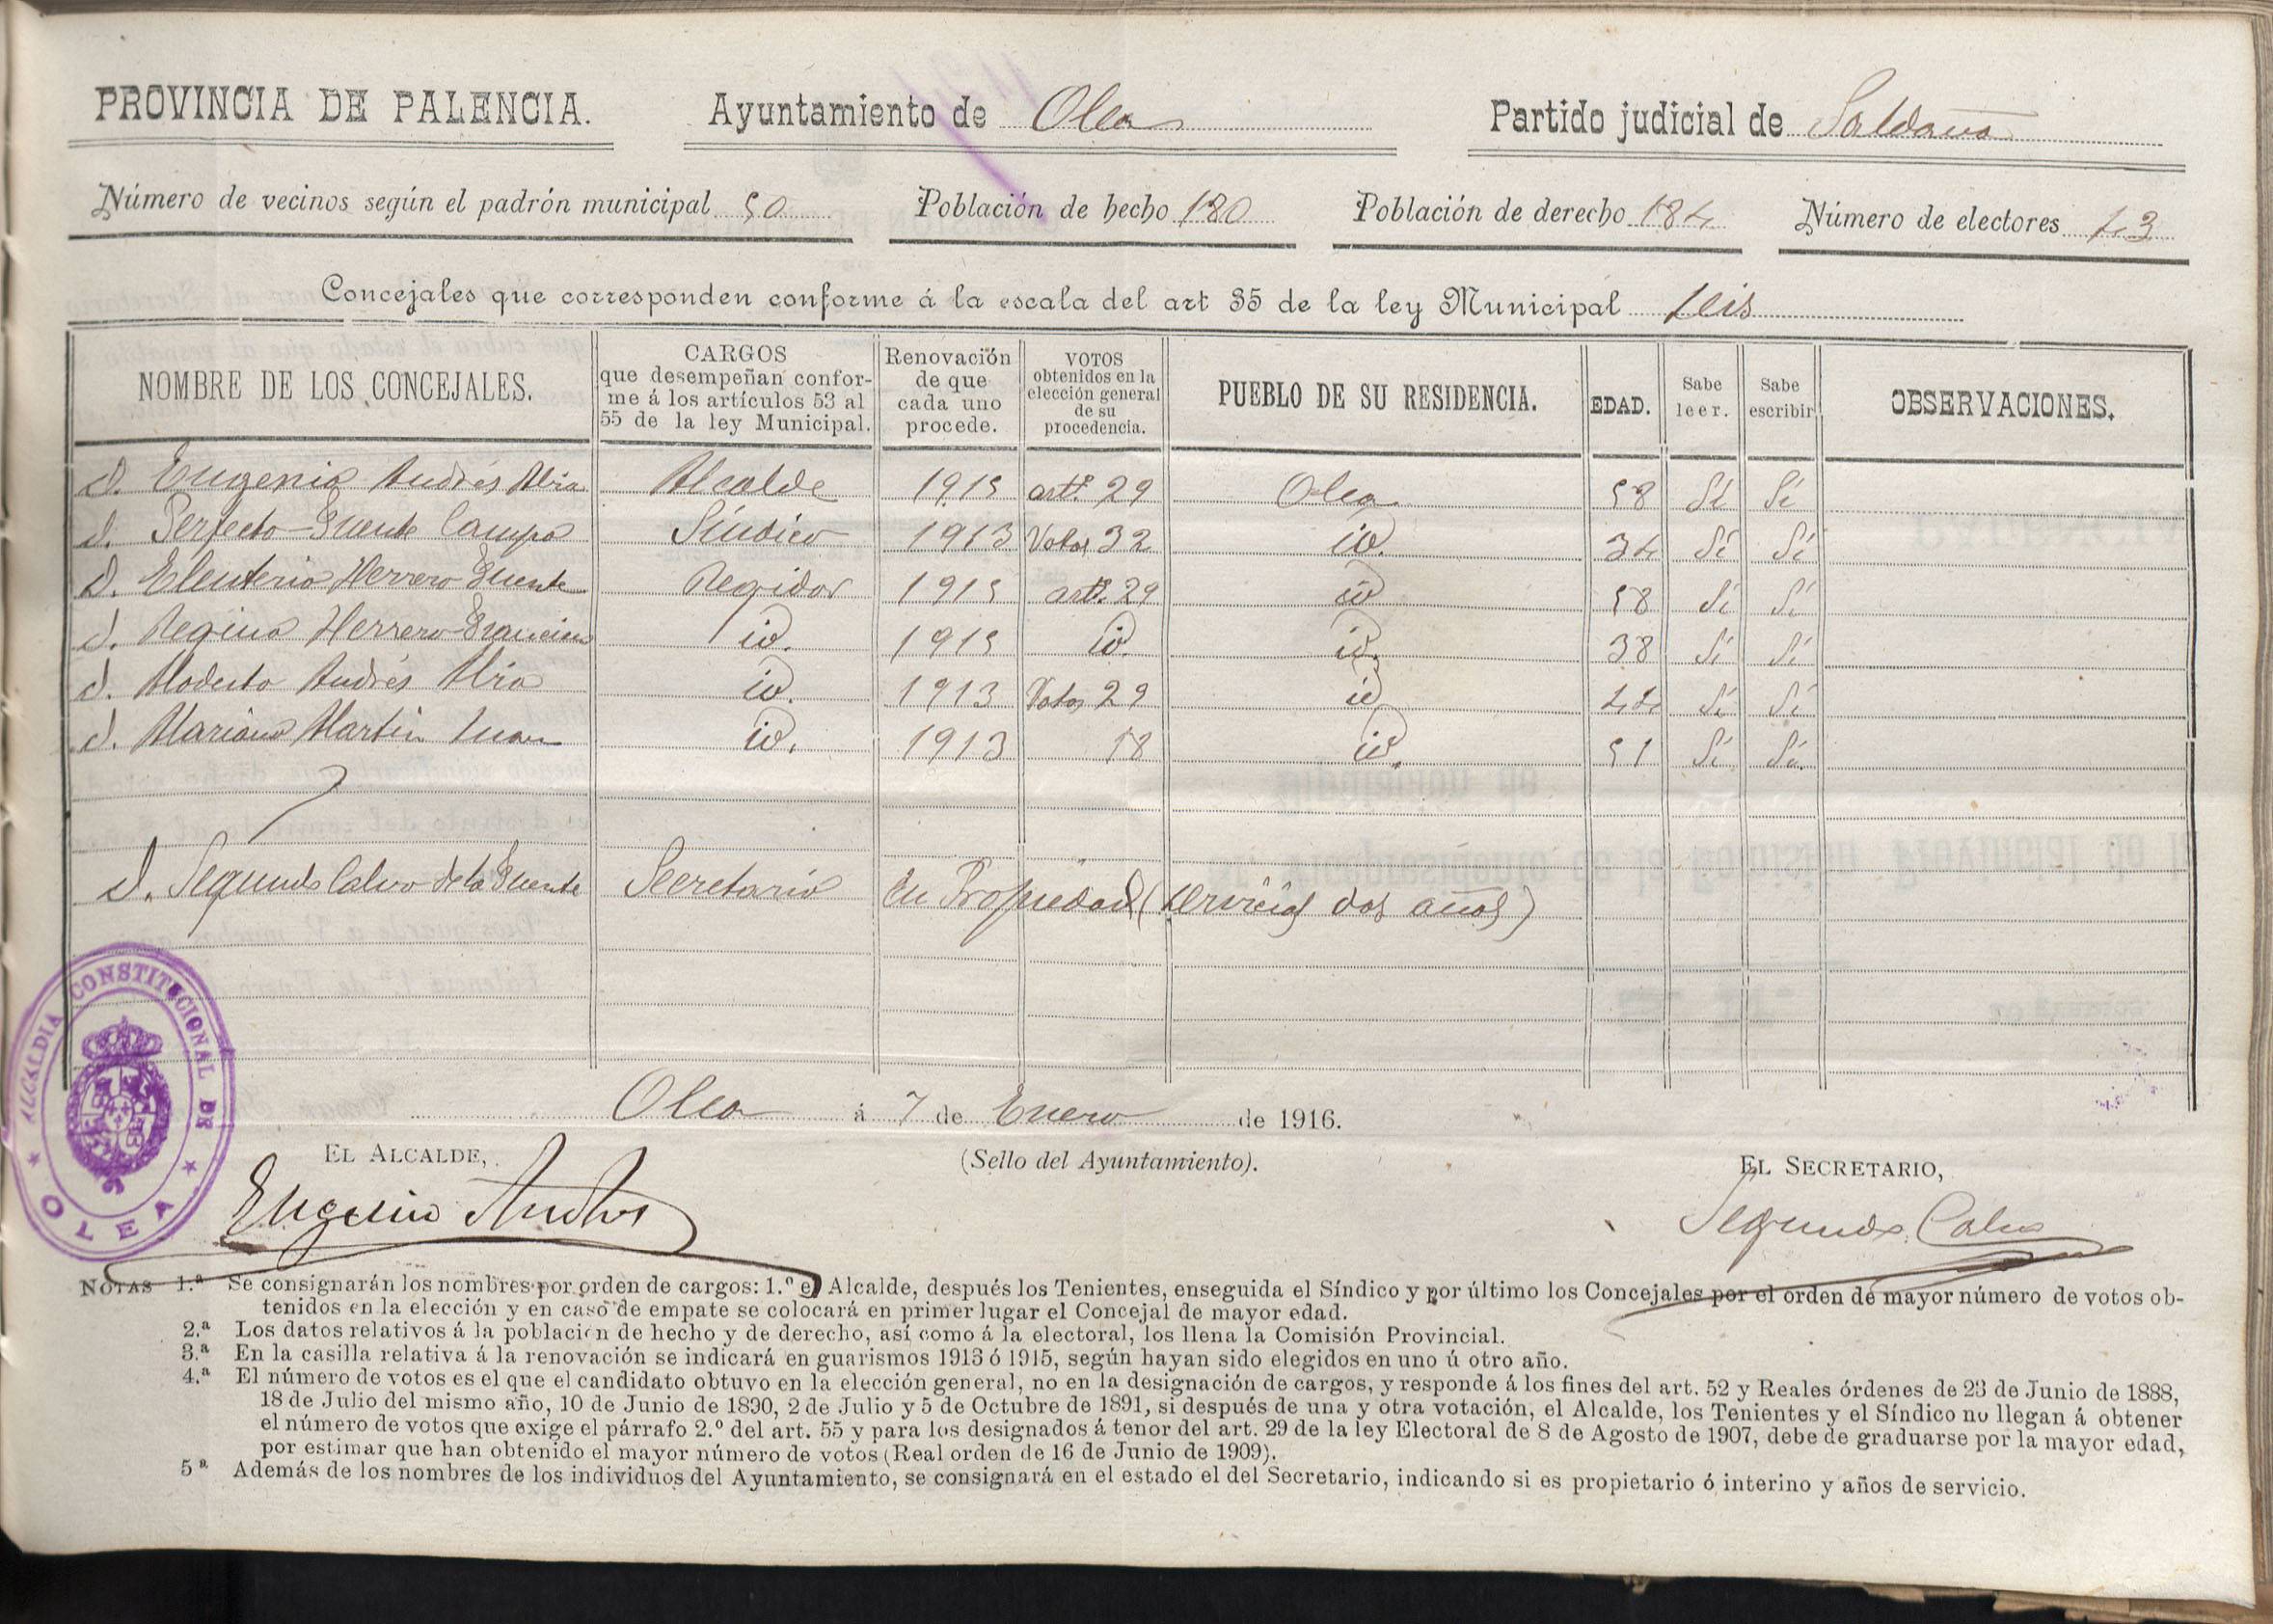 PROVINCIA DE PALENCIA. Ayuntamiento de Olea Partido judicial de Saldaña
Número de vecinos según el padrón municipal 50 Población de hecho 180 Población de derecho 184 Número de electores 43
Concejales que corresponden conforme á la escala del art 35 de la ley Municipal Seis
NOMBRE DE LOS CONCEJALES. CARGOS que desempeñan conforme á los artículos 53 al 55 de la ley Municipal. Renovación de que cada uno procede. VOTOS obtenidos en la elección general de su procedencia. PUEBLO DE SU RESIDENCIA. EDAD. Sabe leer. Sabe escribir OBSERVACIONES.
D. Eugenio Andrés Alcalde 1915 artº. 29 Olea 58 Sí Sí
D. Perfecto Fuente Campo Síndico 1913 Votos 32 id. 34 Sí Sí
D. Eleuterio Herrero Fuente Regidor 1915 artº. 29 id 58 Sí Sí
D. Regino Herrero id. 1915 id. id. 38 Sí Sí
D. Modesto Andrés id. 1913 Votos 29 id 44 Sí Sí
D. Mariano Martín id. 1913 18 id. 51 Sí Sí
D. Segundo Calvo de la Fuente Secretario en Propiedad (servicios dos años)
ALCALDIA CONSTITUCIONAL DE OLEA
Olea á 7 de Enero de 1916.
EL ALCALDE, (Sello del Ayuntamiento). EL SECRETARIO,
Eugenio Andrés Segundo Calvo
NOTAS 1.ª Se consignarán los nombres por orden de cargos: 1.º el Alcalde, después los Tenientes, enseguida el Síndico y por último los Concejales por el orden de mayor número de votos ob-
tenidos en la elección y en caso de empate se colocará en primer lugar el Concejal de mayor edad.
2.ª Los datos relativos á la población de hecho y de derecho, así como á la electoral, los llena la Comisión Provincial.
3.ª En la casilla relativa á la renovación se indicará en guarismos 1913 ó 1915, según hayan sido elegidos en uno ú otro año.
4.ª El número de votos es el que el candidato obtuvo en la elección general, no en la designación de cargos, y responde á los fines del art. 52 y Reales órdenes de 23 de Junio de 1888,
18 de Julio del mismo año, 10 de Junio de 1890, 2 de Julio y 5 de Octubre de 1891, si después de una y otra votación, el Alcalde, los Tenientes y el Síndico no llegan á obtener
el número de votos que exige el párrafo 2.º del art. 55 y para los designados á tenor del art. 29 de la ley Electoral de 8 de Agosto de 1907, debe de graduarse por la mayor edad,
por estimar que han obtenido el mayor número de votos (Real orden de 16 de Junio de 1909).
5ª Además de los nombres de los individuos del Ayuntamiento, se consignará en el estado el del Secretario, indicando si es propietario ó interino y años de servicio.